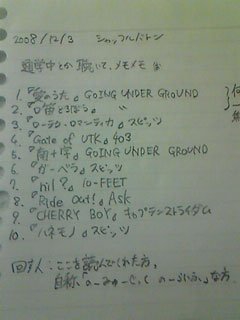 2008/12/3 シャッフルバトン
通学中とか聴いて、メモメモ
1.『愛のうた』GOING UNDER GROUND
2.『口笛とさぼう』 〃
3.『ローテク・ロマンティカ』スピッツ
4.『Gate of UTK』403
5.『南十字』GOING UNDER GROUND
6.『ガーベラ』スピッツ
7.『nil?』10-FEET
8.『Ride Out!』Ask
9.『CHERRY BOY』キャプテンストライダム
10.『ハネモノ』スピッツ
回す人：ここを読んでくれた方。
自称、『のーみゅーじっく のーらいふ』な方。